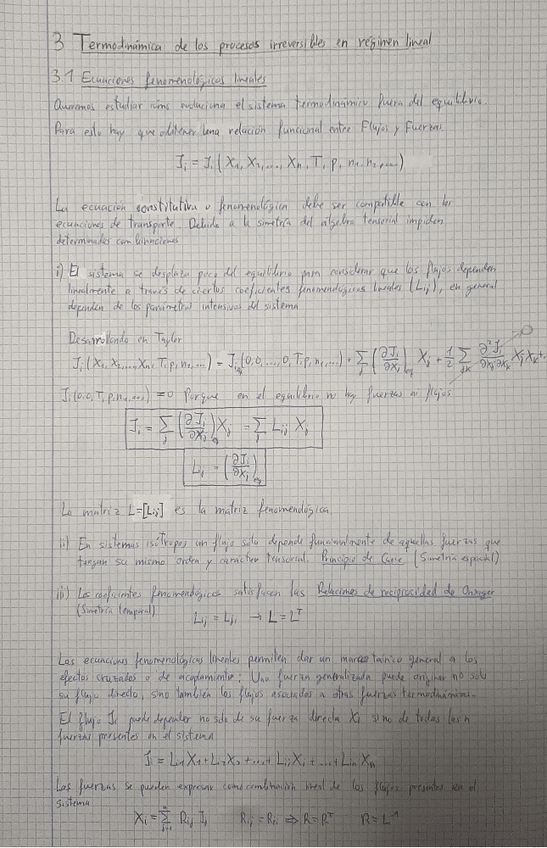 3 Termodinámica de los procesos irreversibles en régimen lineal
3.1 Ecuaciones fenomenológicas lineales
Queremos estudiar cómo evoluciona el sistema termodinámico fuera del equilibrio.
Para esto hay que obtener una relación funcional entre Flujos y Fuerzas.
J_i = J_i (X_1, X_2, ..., X_n, T, p, n_1, n_2, ...)
La ecuación constitutiva o fenomenológica debe ser compatible con las
ecuaciones de transporte. Debido a la simetría del álgebra tensorial impiden
determinadas combinaciones
i) El sistema se desplaza poco del equilibrio para considerar que los flujos dependen
linealmente a través de ciertos coeficientes fenomenológicos lineales (L_ij), en general
dependen de los parámetros intensivos del sistema
Desarrollando en Taylor
J_i (X_1, X_2, ..., X_n, T, p, n_1, ...) = J_i,eq (0,0,...,0, T, p, n_1, ...) + Σ_j (∂J_i/∂X_j)_eq X_j + 1/2 Σ_jk ∂²J_i/∂X_j∂X_k X_j X_k + ... 0
J_i (0,0, T, p, n_1, ...) = 0 Porque en el equilibrio no hay fuerzas ni flujos
J_i = Σ_j (∂J_i/∂X_j)_eq X_j = Σ_j L_ij X_j
L_ij = (∂J_i/∂X_j)_eq
La matriz L=[L_ij] es la matriz fenomenológica
ii) En sistemas isótropos un flujo solo depende funcionalmente de aquellas fuerzas que
tengan su mismo orden y carácter tensorial. Principio de Curie (Simetría espacial)
iii) Los coeficientes fenomenológicos satisfacen las Relaciones de reciprocidad de Onsager
(Simetría temporal)
L_ij = L_ji → L = L^T
Las ecuaciones fenomenológicas lineales permiten dar un marco teórico general a los
efectos cruzados o de acoplamiento: Una fuerza generalizada puede originar no solo
su flujo directo, sino también los flujos asociados a otras fuerzas termodinámicas.
El flujo J_i puede depender no solo de su fuerza directa X_i sino de todas las n
fuerzas presentes en el sistema
J_i = L_i1 X_1 + L_i2 X_2 + ... + L_ii X_i + ... + L_in X_n
Las fuerzas se pueden expresar como combinación lineal de los flujos presentes en el
sistema
X_i = Σ_{j=1}^n R_ij J_j R_ij = R_ji ⇒ R = R^T R = L^-1